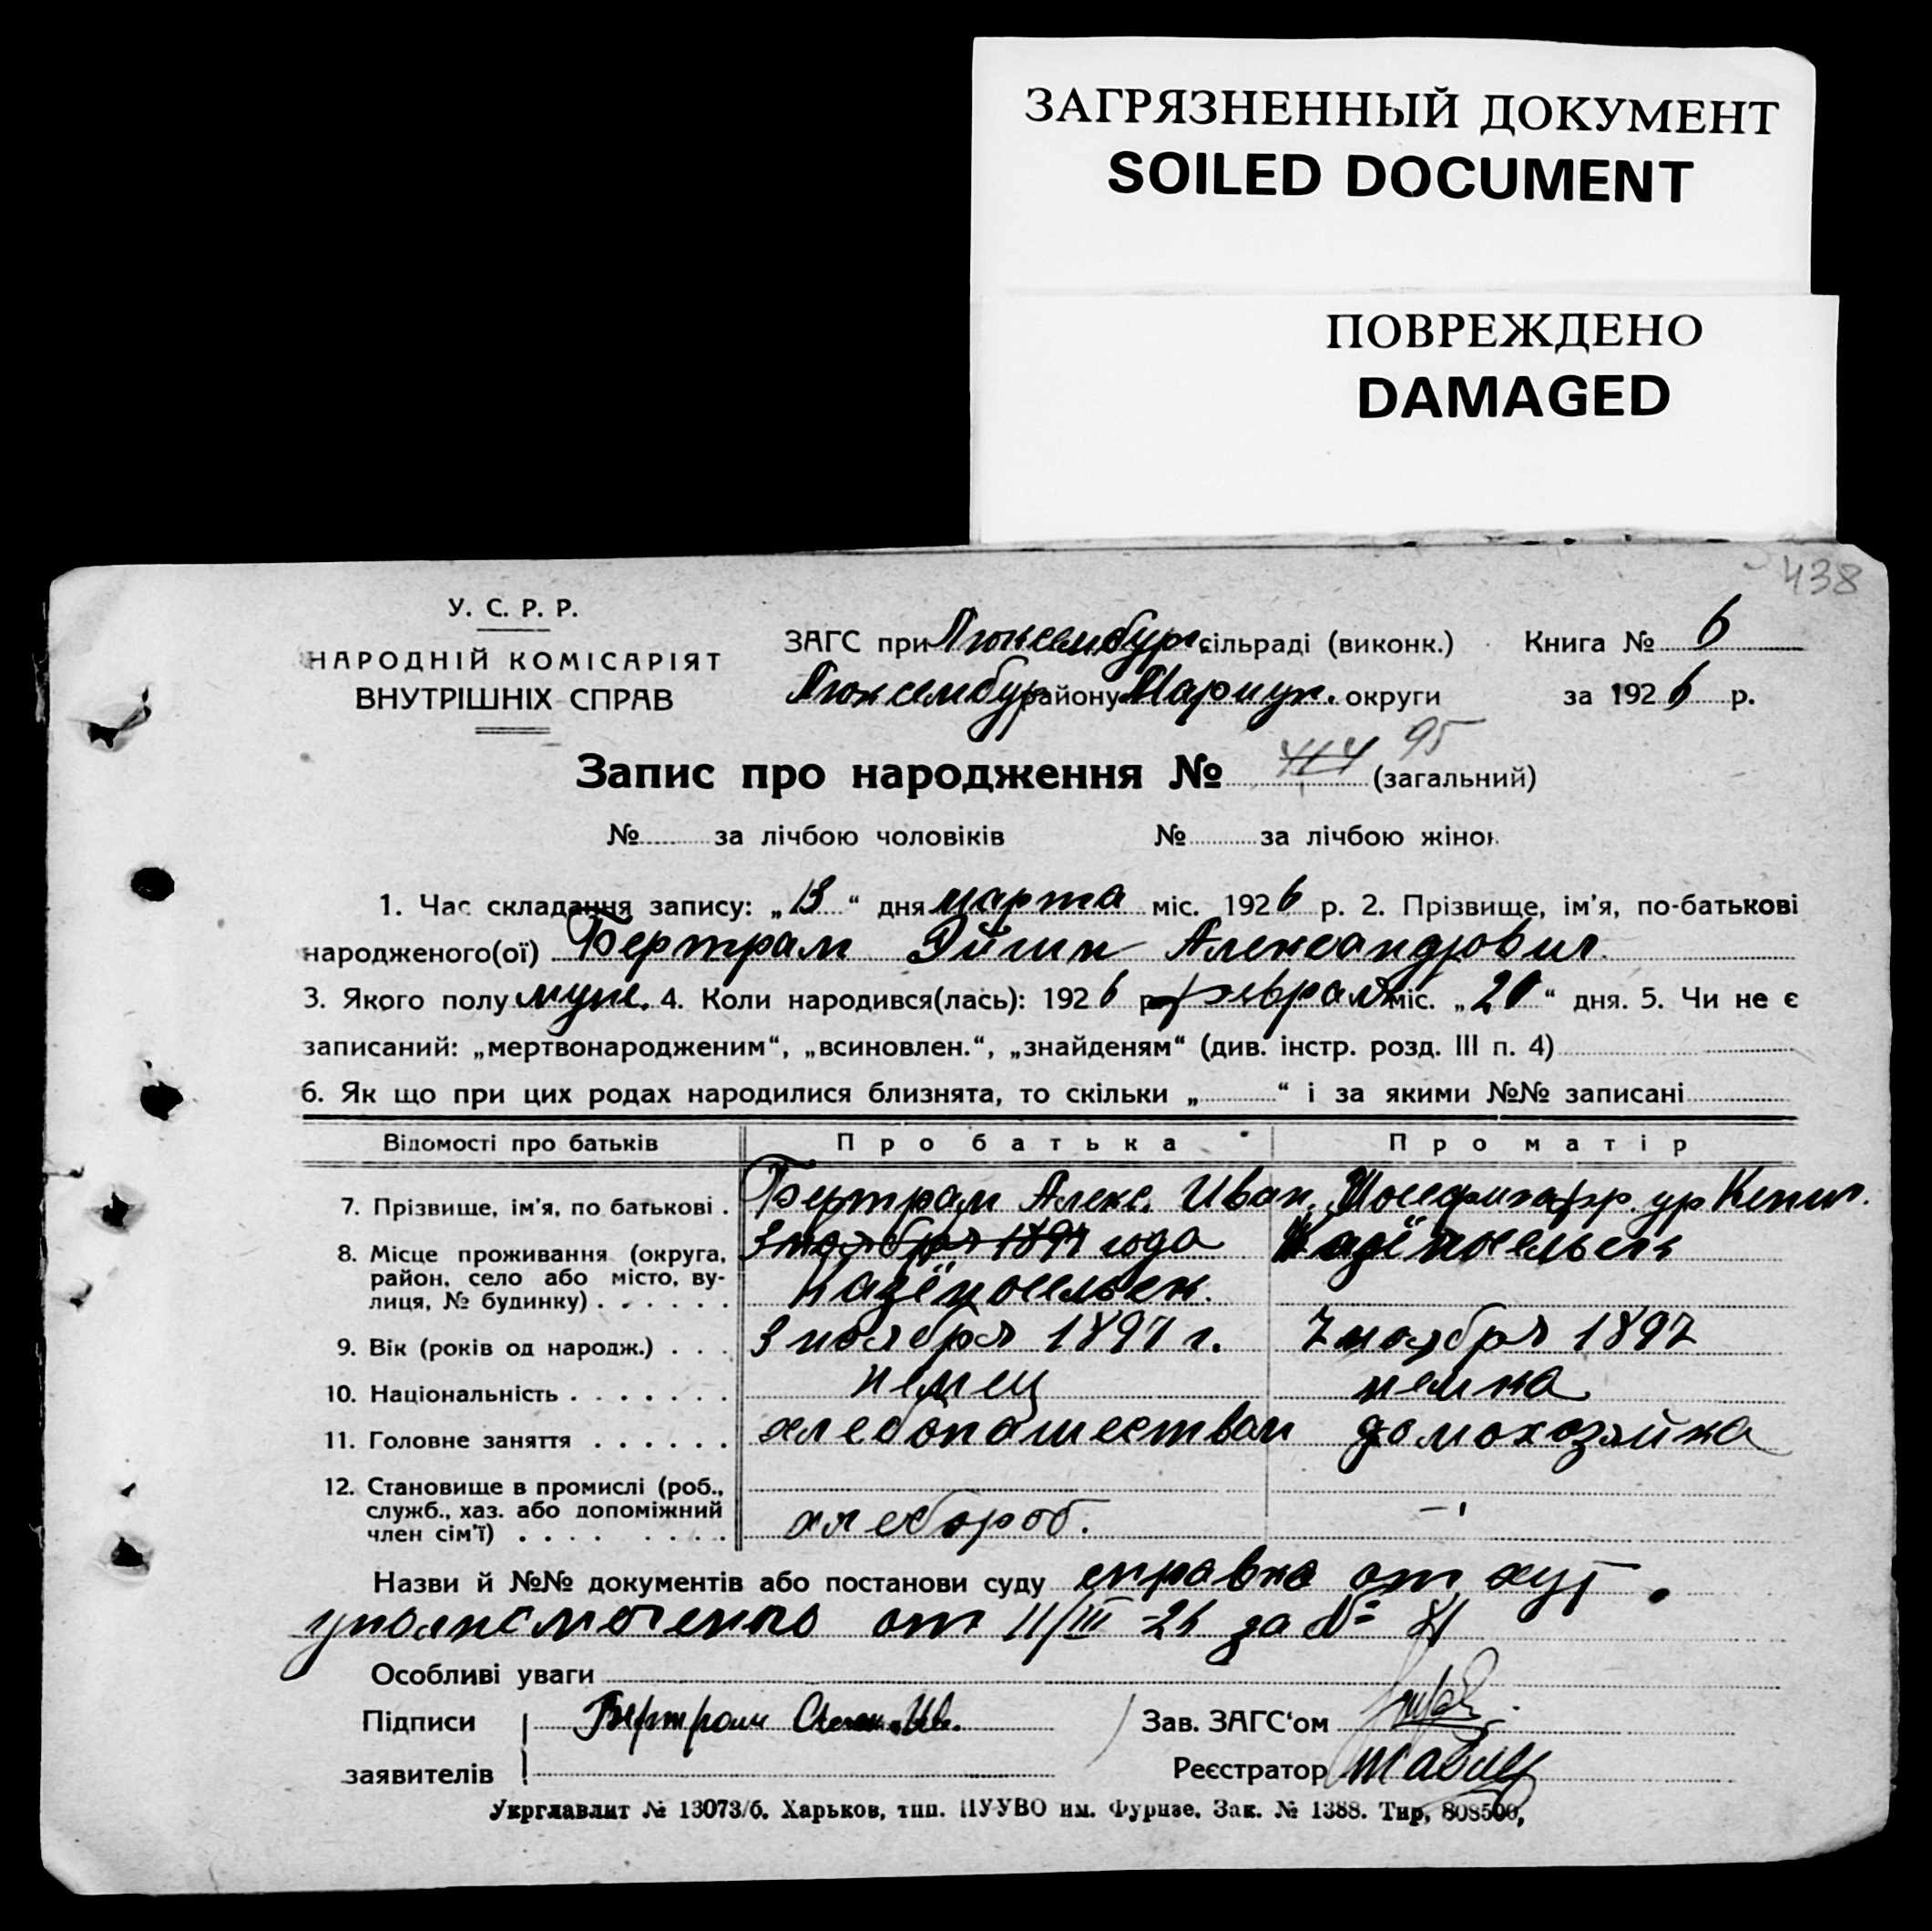 ЗАГРЯЗНЕННЫЙ ДОКУМЕНТ
SOILED DOCUMENT
ПОВРЕЖДЕНО
DAMAGED
438
У. С. Р. Р.
НАРОДНІЙ КОМІСАРІЯТ
ВНУТРІШНІХ СПРАВ
ЗАГС при Люксембург. сільраді (виконк.) Книга № 6
Люксембур району Мариуп. округи за 1926 р.
Запис про народження № 414 95 (загальний)
№ за лічбою чоловіків № за лічбою жінок
1. Час складання запису: „13“ дня марта міс. 1926 р. 2. Прізвище, ім'я, по-батькові
народженого(ої) Бертрам Александрович
3. Якого полу муж. 4. Коли народився(лась): 1926 р. февраля міс. „20“ дня. 5. Чи не є
записаний: „мертвонародженим“, „всиновлен.“, „знайденям“ (див. інстр. розд. III п. 4)
6. Як що при цих родах народилися близнята, то скільки „ “ і за якими №№ записані
Відомості про батьків Про батька Про матір
7. Прізвище, ім'я, по батькові . Бертрам Алекс. Иван. ур
8. Місце проживання (округа, 3 ноября 1897 года
район, село або місто, ву-
лиця, № будинку) . . . . . .
9. Вік (років од народж.) . . . 3 ноября 1897 г. 7 ноября 1897
10. Національність . . . . . . . немец немка
11. Головне заняття . . . . . . хлебопашеством домохозяйка
12. Становище в промислі (роб.,
служб., хаз. або допоміжний
член сім'ї) . . . . . . . . хлебороб. –
Назви й №№ документів або постанови суду справка от хут.
уполномоченно от 11/III-26 за №
Особливі уваги
Підписи Бертрам Алек. Ив. Зав. ЗАГС'ом
заявителів Реєстратор
Укрглавлит № 13073/б. Харьков, тип. ПУУВО им. Фрунзе. Зак. № 1388. Тир, 808500,